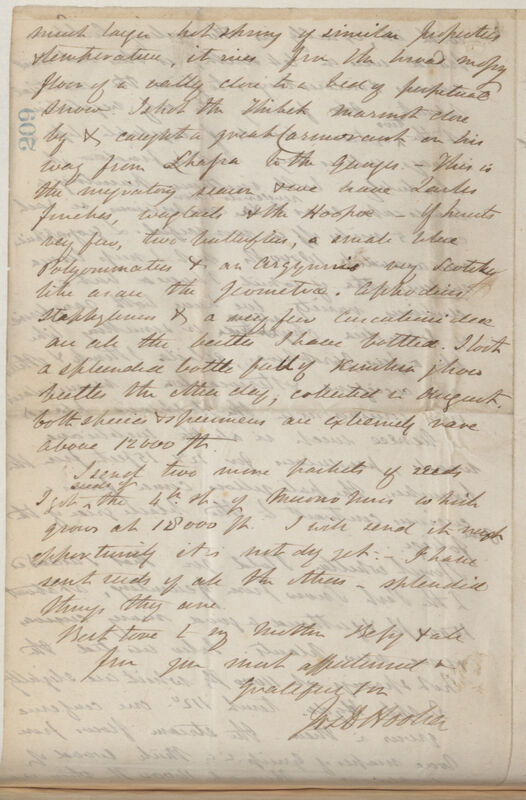 much larger hot spring of similar properties
& temperature, it rises from the broad mossy
floor of a valley close to a bed of perpetual
snow. I shot the Thibet marmot close
by & caught a great cormorant on his
way from Lhassa to the Ganges. — This is
the migratory season & we have Larks
finches, wagtails & the Hoopoe — Of Insects
very few, two butterflies, a small blue
Polyommatus & an Argynnis very Scotch
like as are the Geometrae. Aphodius
Staphylinus & a very few Curculionidae
are all the beetles I have bottled. I lost
a splendid bottle full of
beetles the other day, collected in August.
both species & specimens are extremely rare
above 12000 ft.
I send two more packets of seeds
I got seeds of the 4th sp. of Meconopsis which
grows at 18000 ft. I will send it next
opportunity it is not dry yet. — I have
sent seeds of all the others — splendid
things they are.
Best love to my Mother Bessy & all
from your most affectionate &
grateful son
Jos D Hooker
209